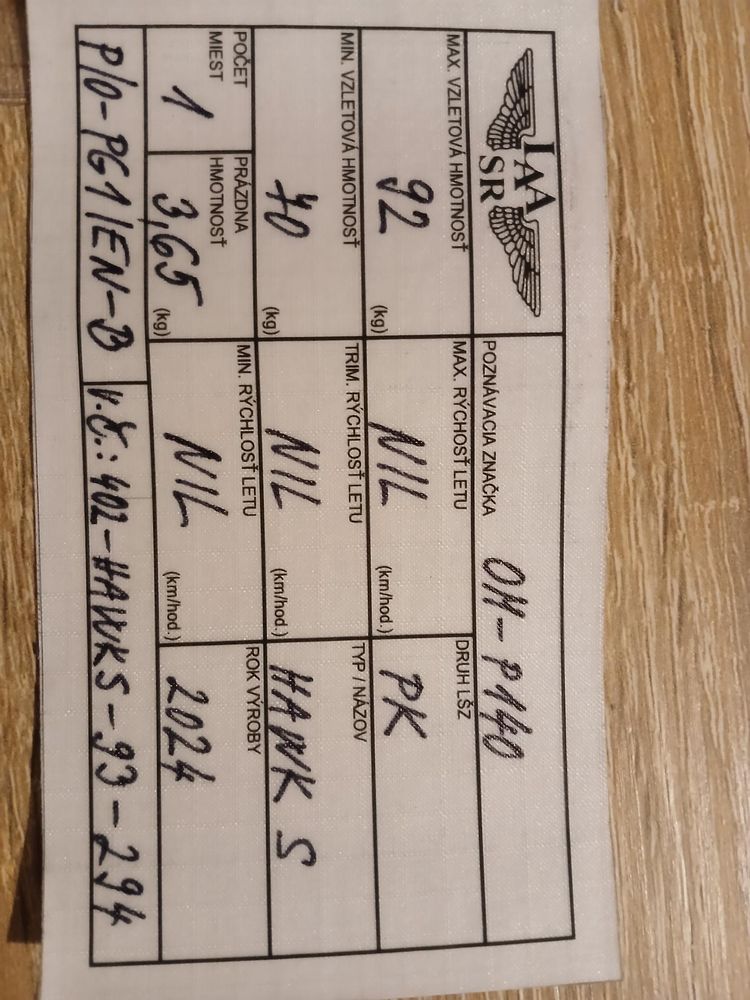 LAA
SR
POZNÁVACIA ZNAČKA OM-P140
MAX. VZLETOVÁ HMOTNOSŤ
92 (kg)
MAX. RÝCHOSŤ LETU
NIL (km/hod.)
DRUH LŠZ
PK
MIN. VZLETOVÁ HMOTNOSŤ
70 (kg)
TRIM. RÝCHLOSŤ LETU
NIL (km/hod.)
TYP / NÁZOV
HAWK S
POČET
MIEST
1
PRÁZDNA
HMOTNOSŤ
3,65 (kg)
MIN. RÝCHLOSŤ LETU
NIL (km/hod.)
ROK VÝROBY
2024
P/O-PG1/EN-B
V.Č.: 402-HAWKS-93-294